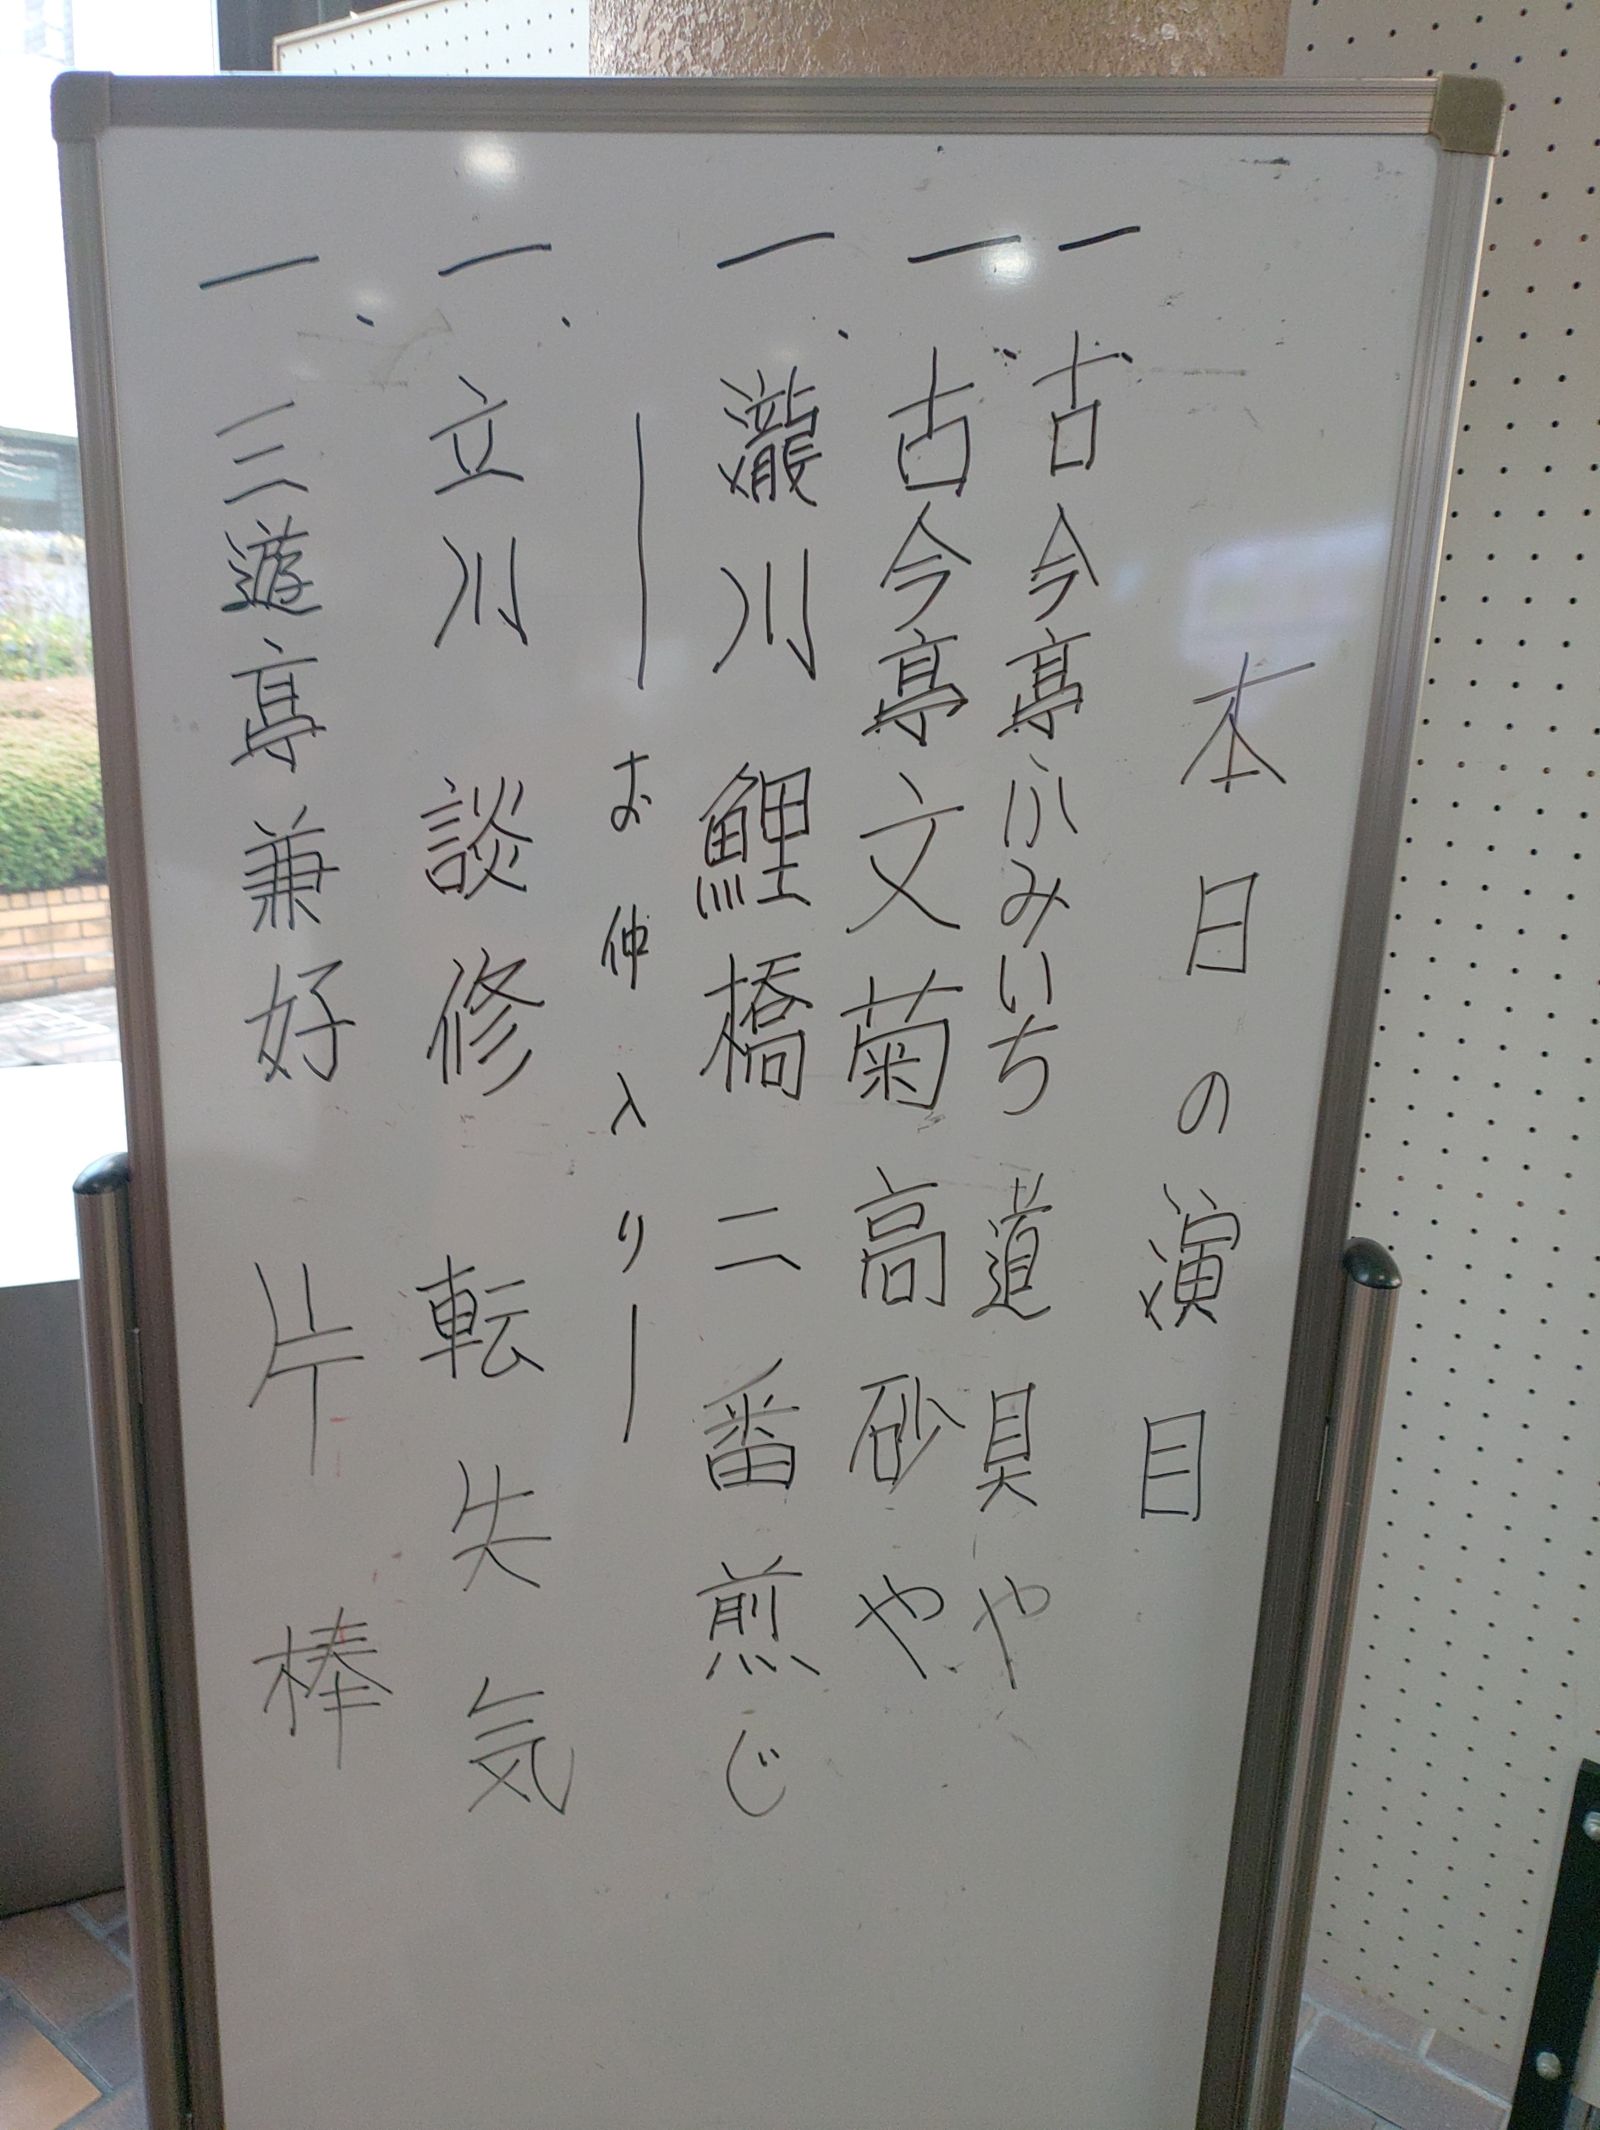 本日の演目
一、古今亭ふみいち 道具や
一、古今亭文菊 高砂や
一、瀧川鯉橋 二番煎じ
―お仲入り―
一、立川談修 転失気
一、三遊亭兼好 片棒